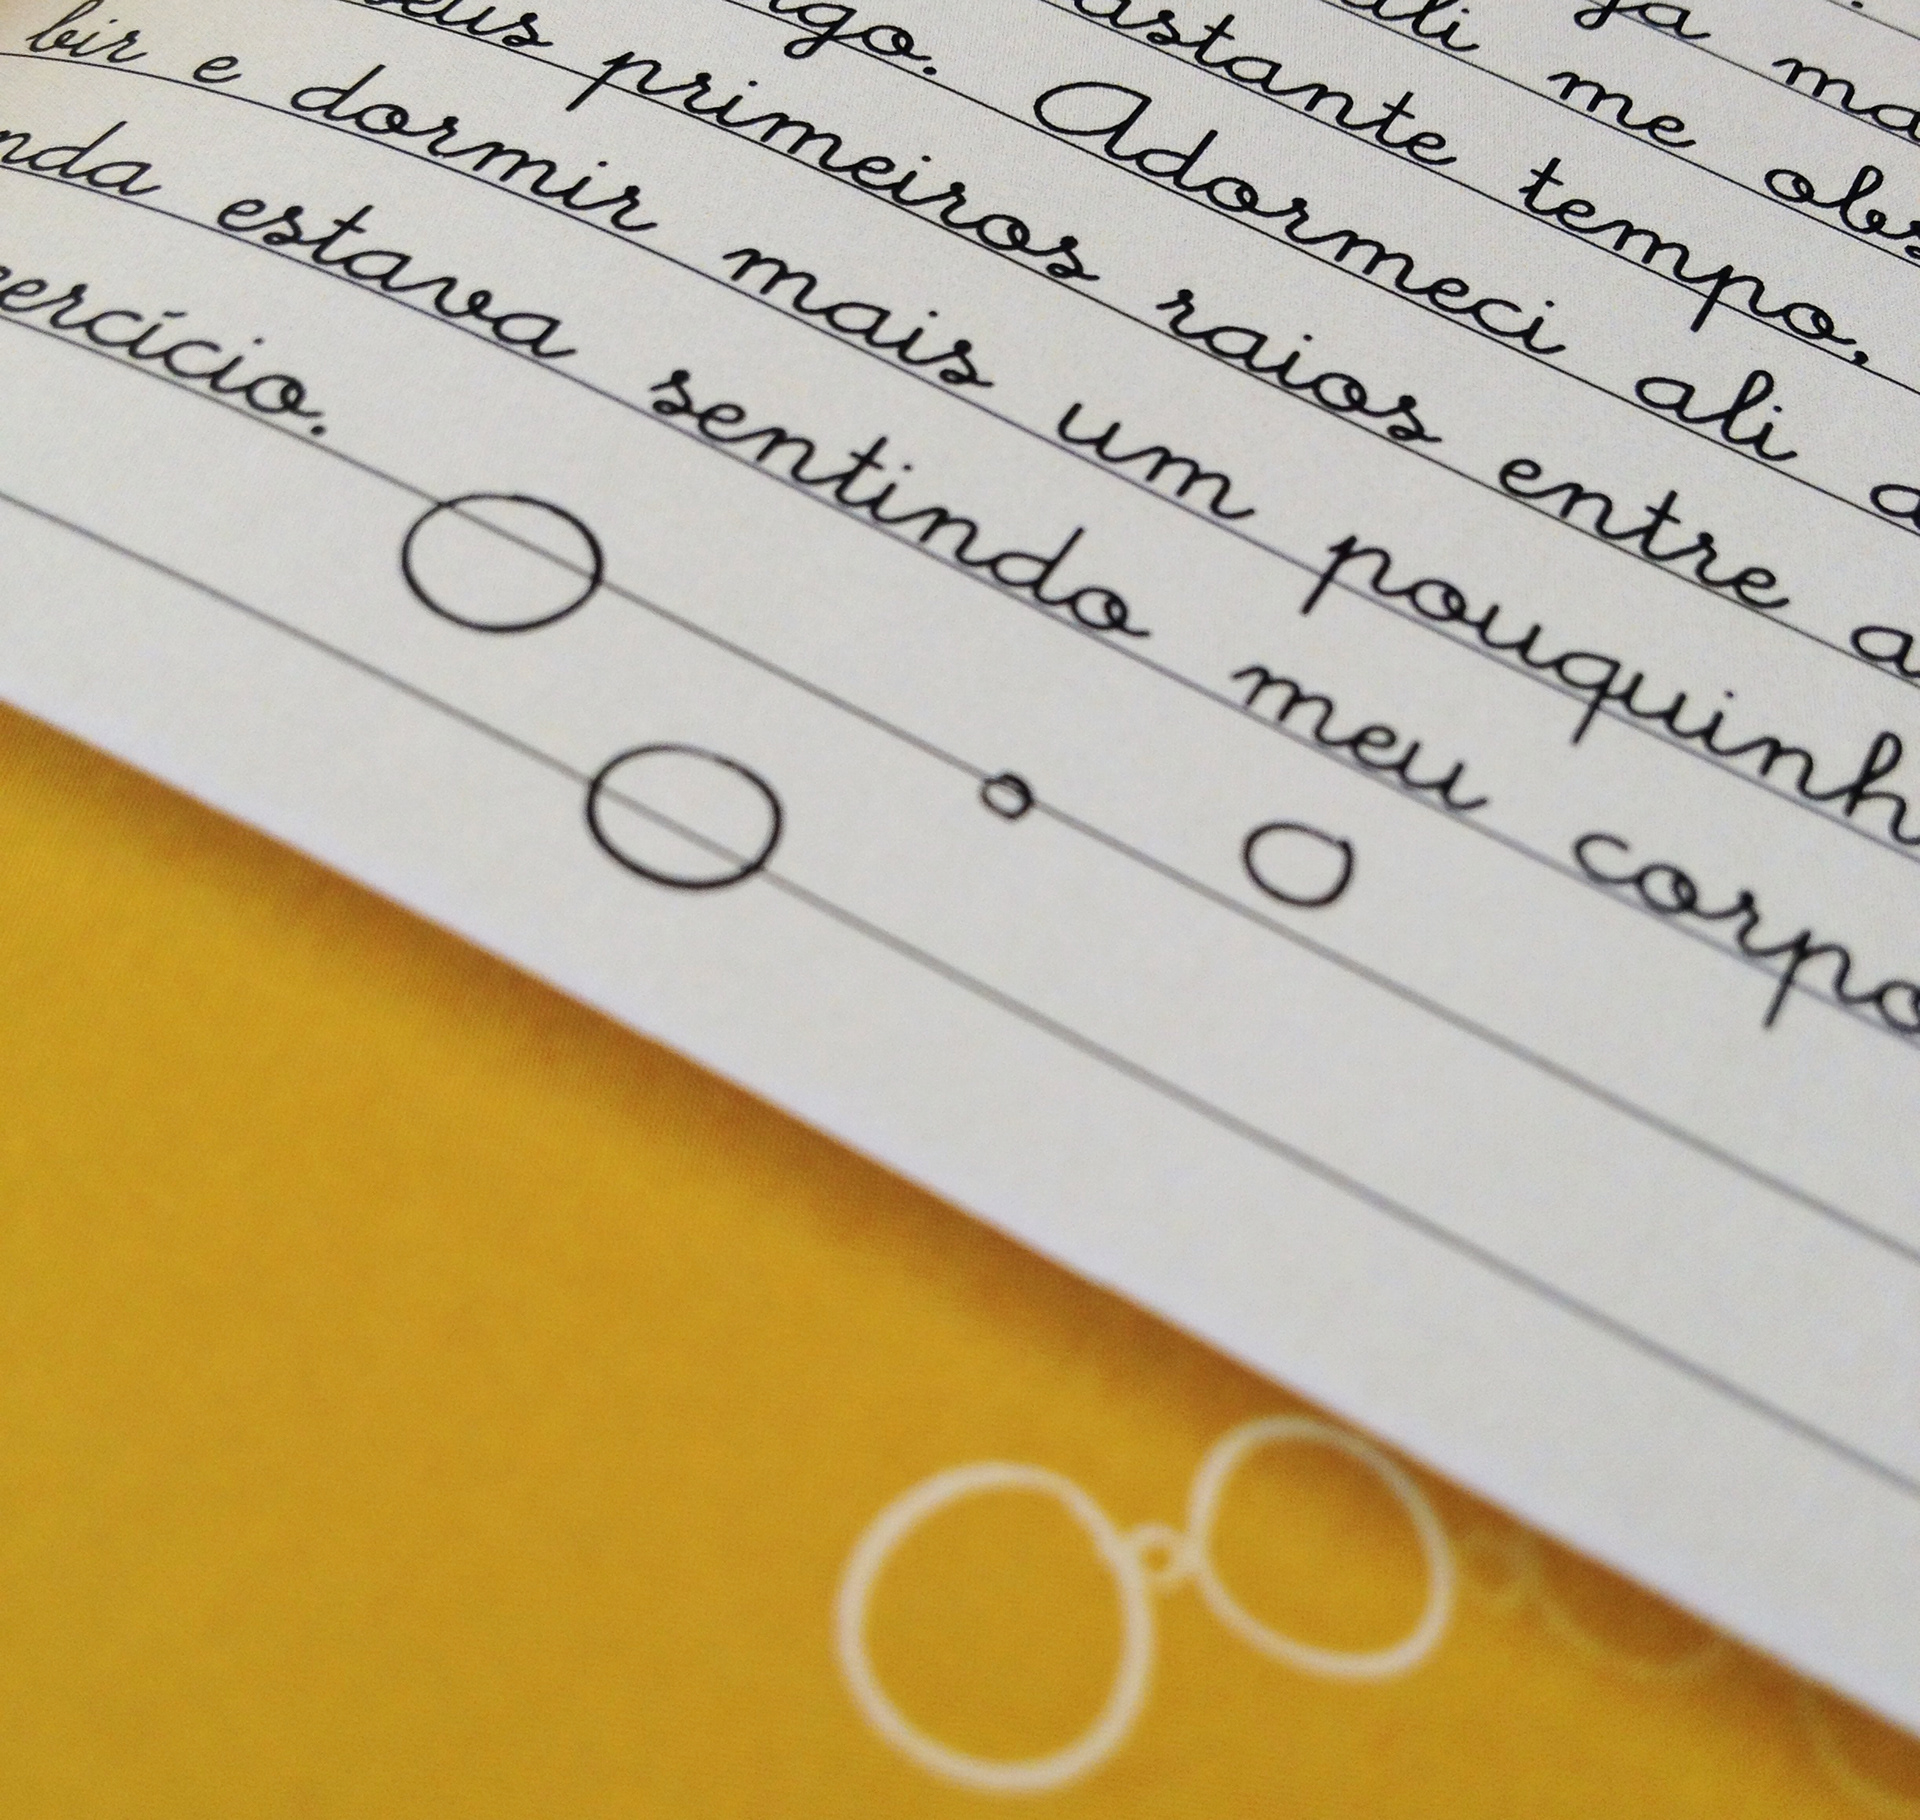 ja ma
ali me obs
astante tempo,
igo. Adormeci ali a
eus primeiros raios entre a
bir e dormir mais um pouquinh
nda estava sentindo meu corpo
ercício.